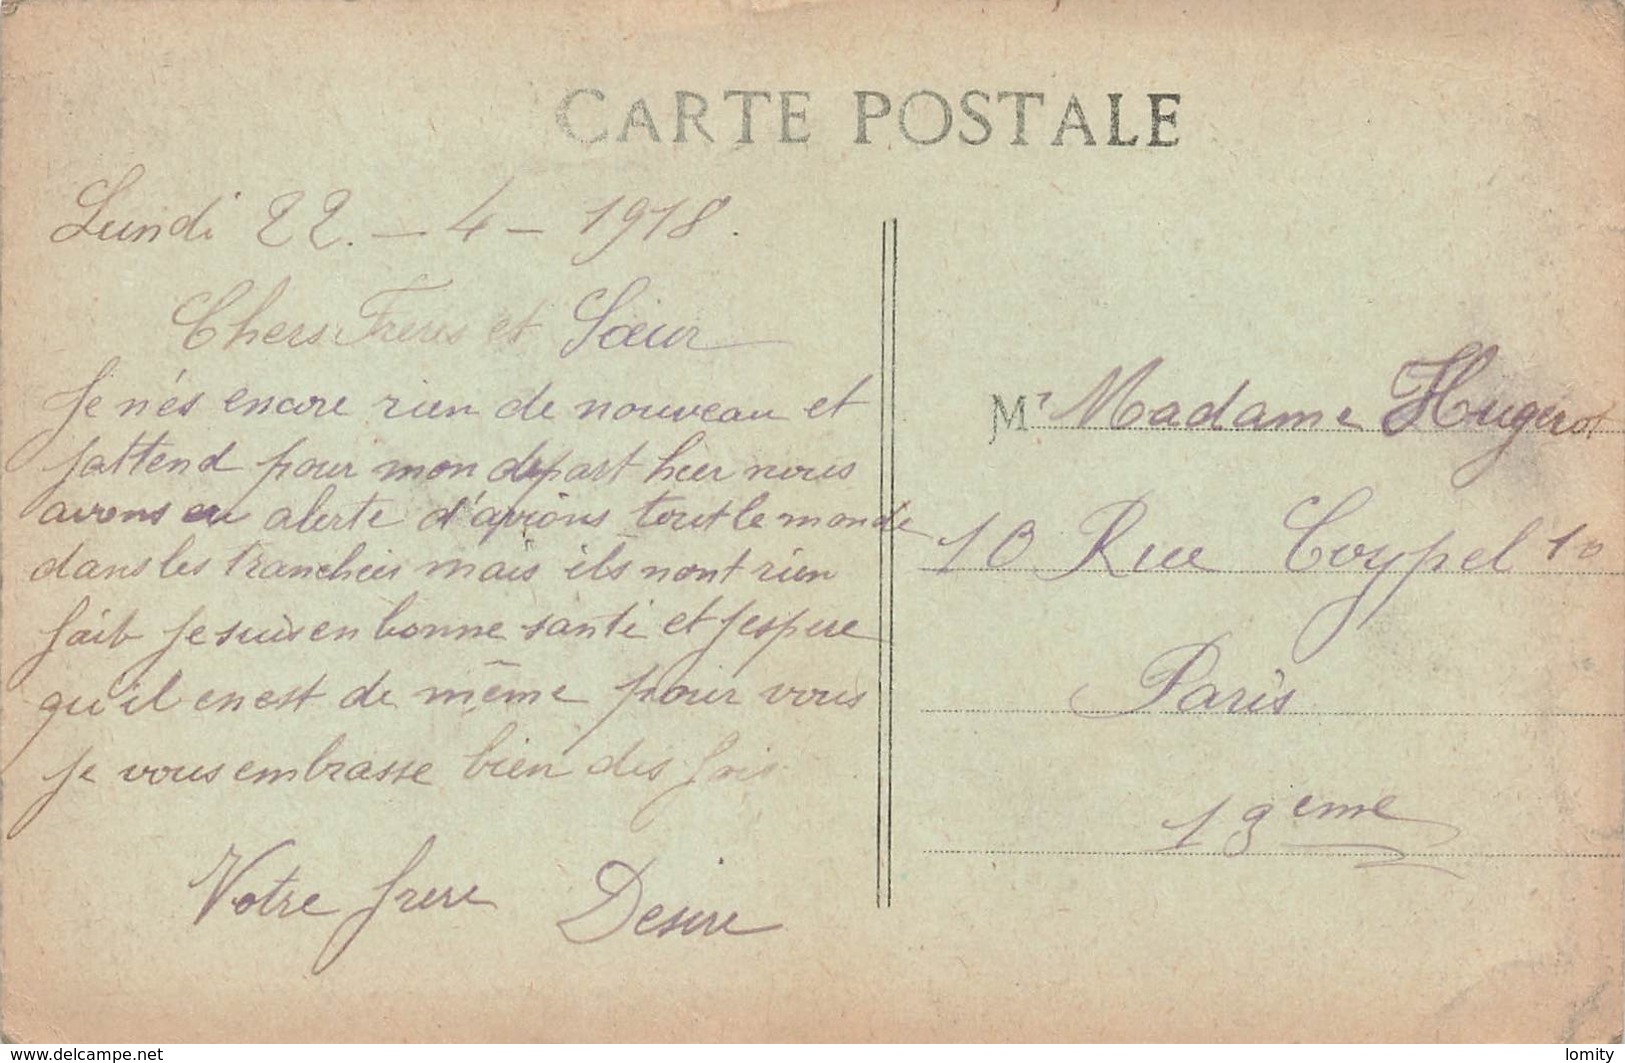 CARTE POSTALE
Lundi 22. - 4 - 1918.
Chers Freres et Sœur
Je n'és encore rien de nouveau et
j'attend pour mon depart hier nous
avons eu alerte d'avions tout le monde
dans les tranchées mais ils nont rien
fait je suis en bonne santé et j'espere
qu'il en est de même pour vous
Je vous embrasse bien des fois
Votre frere Desire
Mr Madame Hugerot
10 Rue Coypel 10
Paris
13eme
www.delcampe.net
lomity